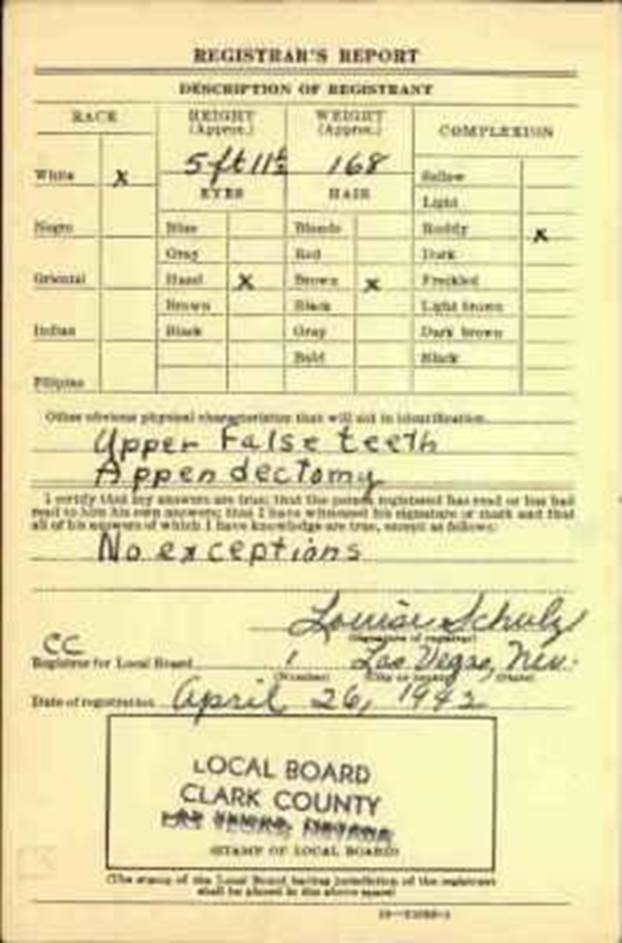 REGISTRAR'S REPORT
DESCRIPTION OF REGISTRANT
RACE HEIGHT (Approx.) WEIGHT (Approx.) COMPLEXION
5 ft 11½ 168
White x EYES HAIR Sallow
Light
Negro Blue Blonde Ruddy x
Gray Red Dark
Oriental Hazel x Brown x Freckled
Brown Black Light brown
Indian Black Gray Dark brown
Bald Black
Filipino
Other obvious physical characteristics that will aid in identification
Upper False teeth
Appendectomy
I certify that my answers are true; that the person registered has read or has had
read to him his own answers; that I have witnessed his signature or mark and that
all of his answers of which I have knowledge are true, except as follows:
No exceptions
Louise Schulz
(Signature of registrar)
CC
Registrar for Local Board 1 Las Vegas, Nev.
(Number) (City or county) (State)
Date of registration April 26, 1942
LOCAL BOARD
CLARK COUNTY
LAS VEGAS, NEVADA
(STAMP OF LOCAL BOARD)
(The stamp of the Local Board having jurisdiction of the registrant
shall be placed in the above space)